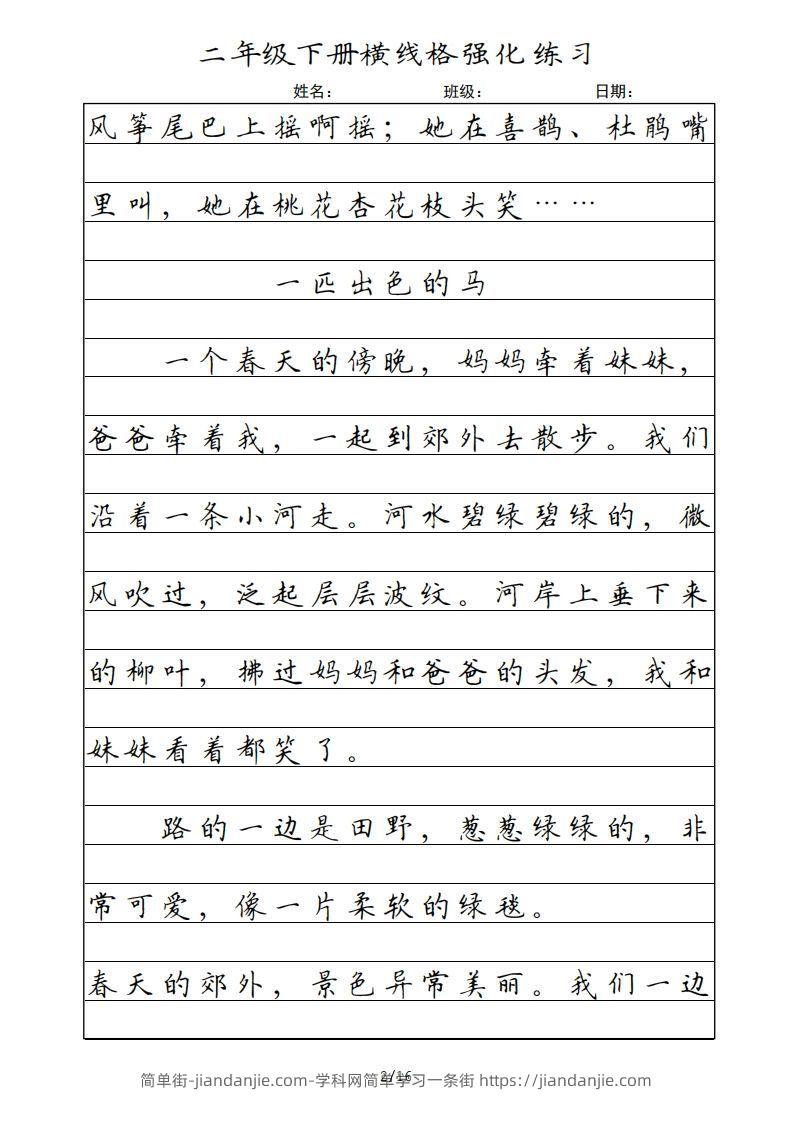 二年级下册横线格强化练习
姓名： 班级： 日期：
风筝尾巴上摇啊摇；她在喜鹊、杜鹃嘴
里叫，她在桃花杏花枝头笑……
一匹出色的马
一个春天的傍晚，妈妈牵着妹妹，
爸爸牵着我，一起到郊外去散步。我们
沿着一条小河走。河水碧绿碧绿的，微
风吹过，泛起层层波纹。河岸上垂下来
的柳叶，拂过妈妈和爸爸的头发，我和
妹妹看着都笑了。
路的一边是田野，葱葱绿绿的，非
常可爱，像一片柔软的绿毯。
春天的郊外，景色异常美丽。我们一边
2/16
简单街-jiandanjie.com-学科网简单学习一条街 https://jiandanjie.com